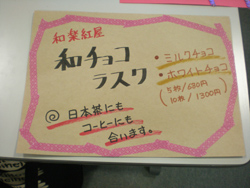 和楽紅屋
和チョコ
ラスク
・ミルクチョコ
・ホワイトチョコ
(5枚/680円)
(10枚/1300円)
◎日本茶にも
コーヒーにも
合います。